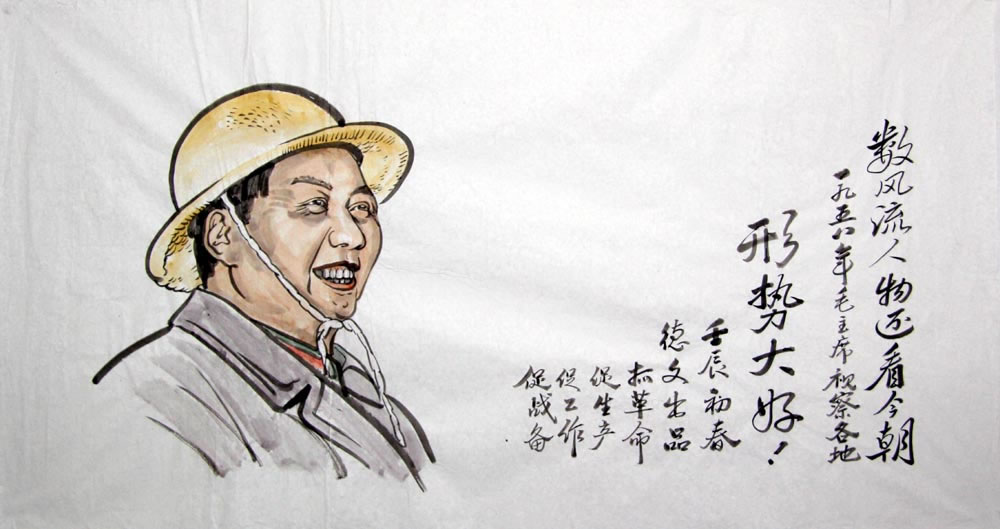 数风流人物还看今朝
一九五八年毛主席视察各地
形势大好！
壬辰初春
德文出品
抓革命
促生产
促工作
促战备